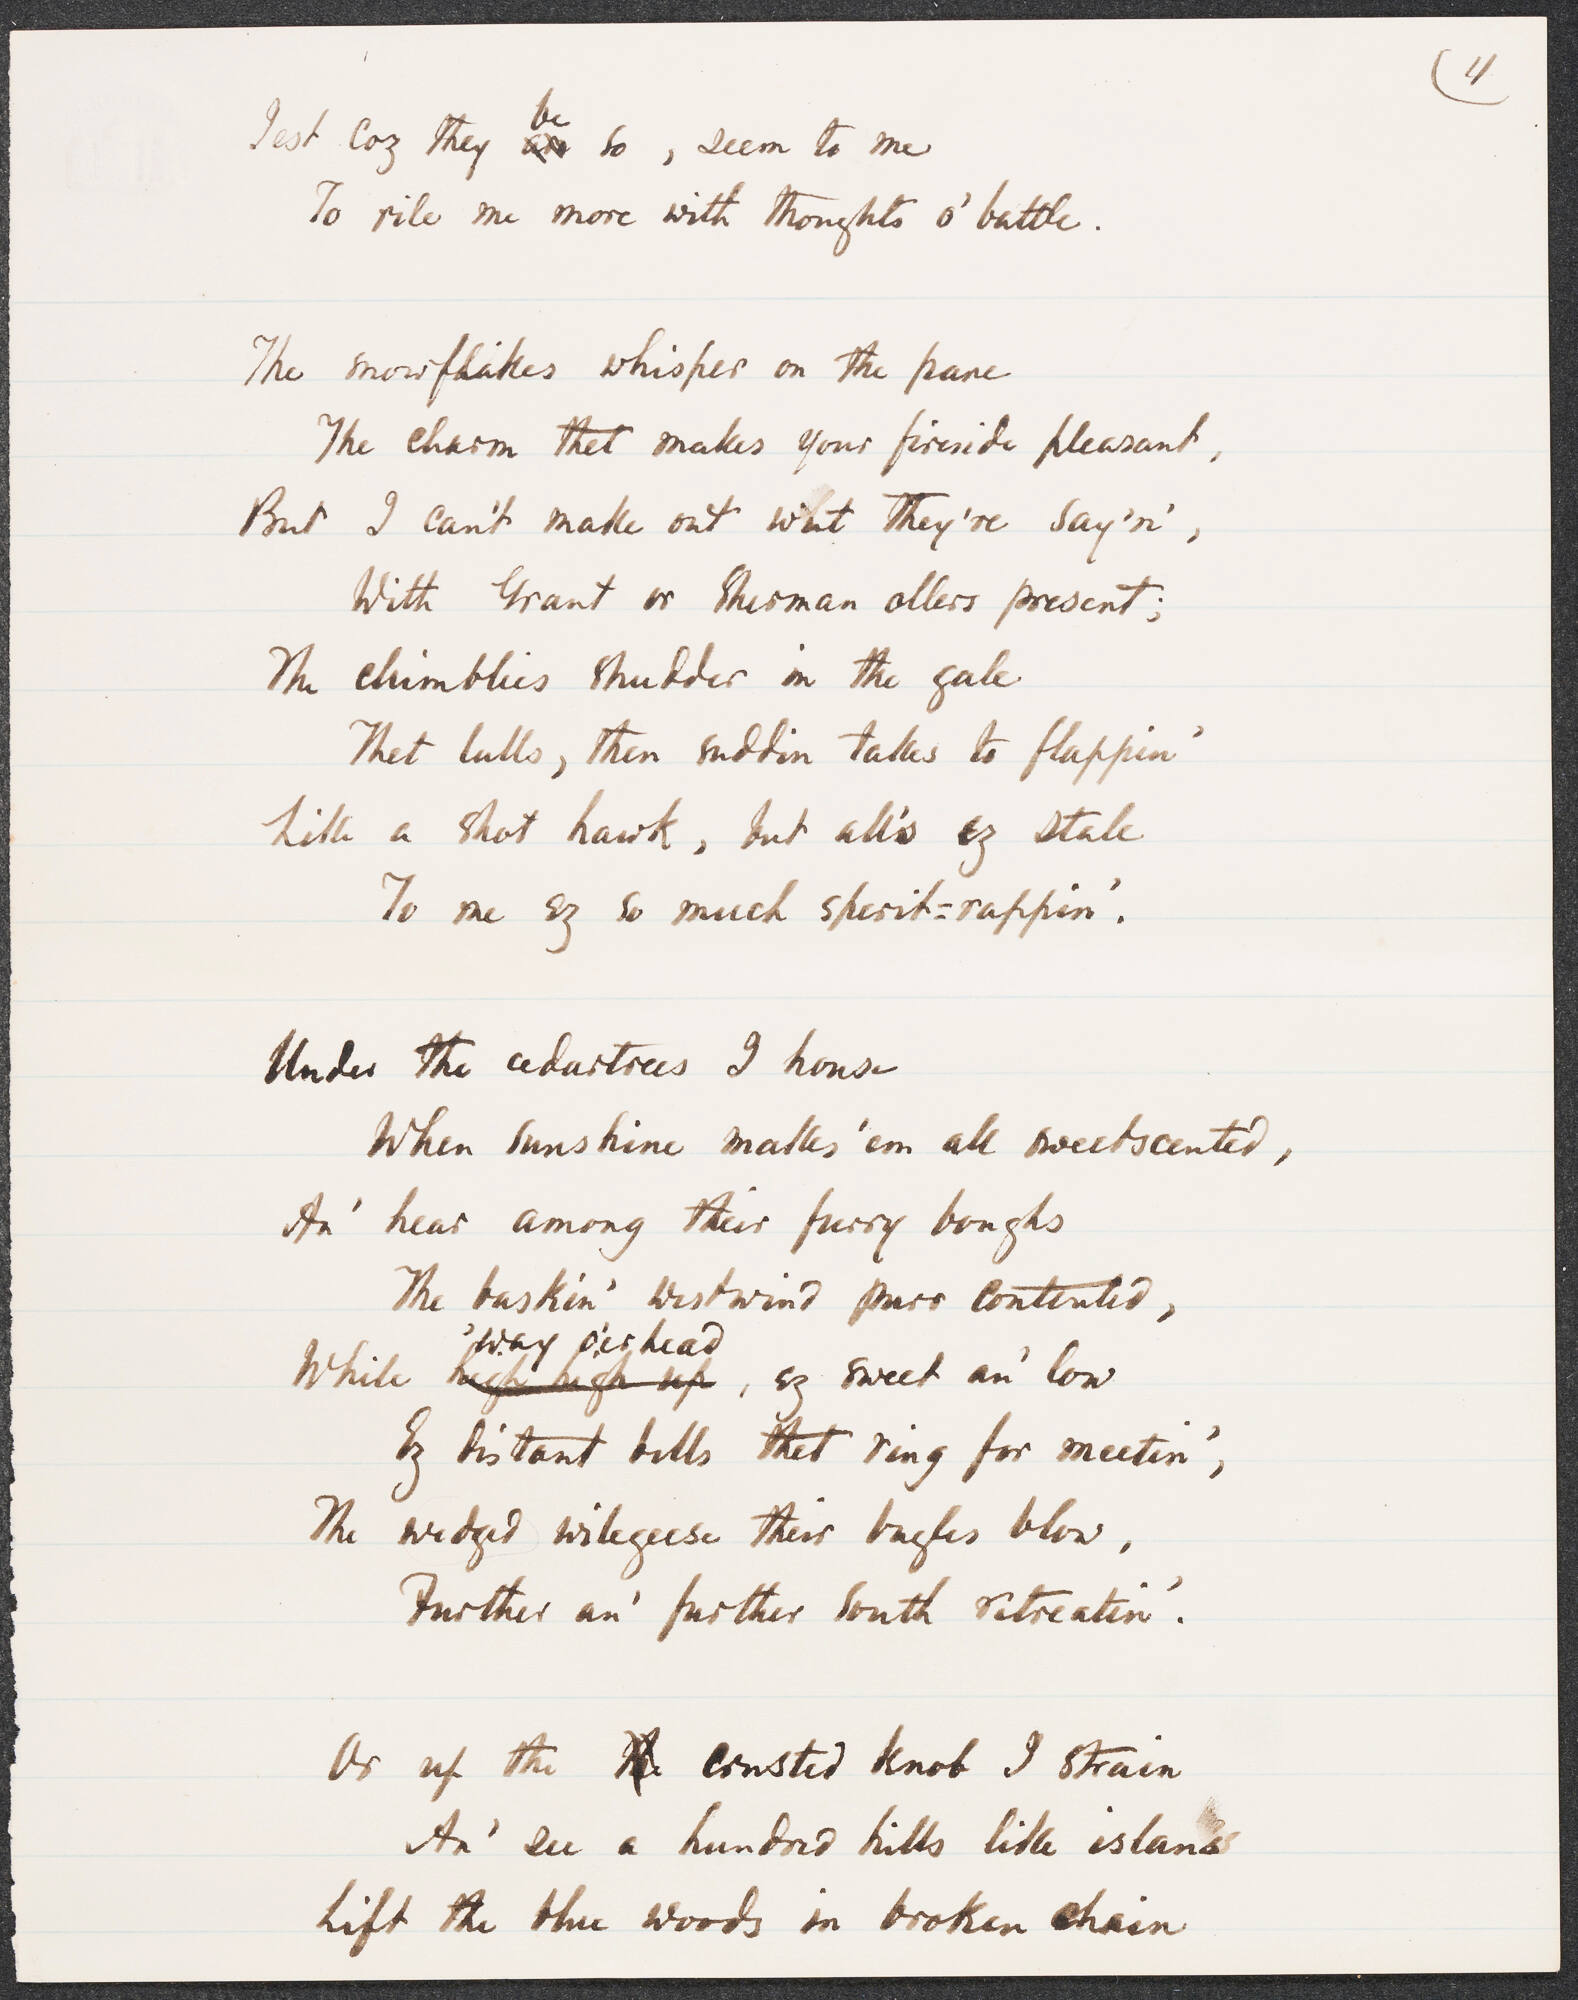 (4
Jest coz they be so, seem to me
To rile me more with thoughts o' battle.
The snowflakes whisper on the pane
The charm thet makes your fireside pleasant,
But I can't make out wut they're say'n',
With Grant or Sherman ollers present;
The chimblies shudder in the gale
Thet lulls, then suddin takes to flappin'
Like a shot hawk, but all's ez stale
To me ez so much sperit=rappin'.
Under the cedartrees I house
When sunshine makes 'em all sweetscented,
An' hear among their furry boughs
The baskin' westwind purr contented,
'way o'erhead
While high high up, ez sweet an' low
Ez distant bells thet ring for meetin',
The wedged wilegeese their bugles blow,
Further an' further South retreatin'.
Or up the the crusted knob I strain
An' see a hundred hills like islans
Lift the blue woods in broken chain